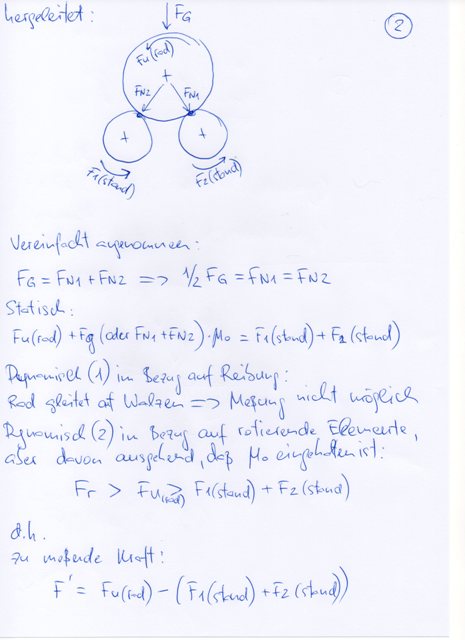 hergeleitet:
FG
2
Fu(rad)
FN2 FN1
F1(stand)
F2(stand)
Vereinfacht angenommen:
FG = FN1 + FN2 => 1/2 FG = FN1 = FN2
Statisch:
Fu(rad) + Fg (oder FN1 + FN2) · µo = F1(stand) + F2(stand)
Dynamisch (1) im Bezug auf Reibung:
Rad gleitet auf Walzen => Meßung nicht möglich
Dynamisch (2) in Bezug auf rotierende Elemente,
aber davon ausgehend, daß µo eingehalten ist:
Fr > Fu(rad) ≥ F1(stand) + F2(stand)
d.h.
zu meßende Kraft:
F' = Fu(rad) - (F1(stand) + F2(stand))